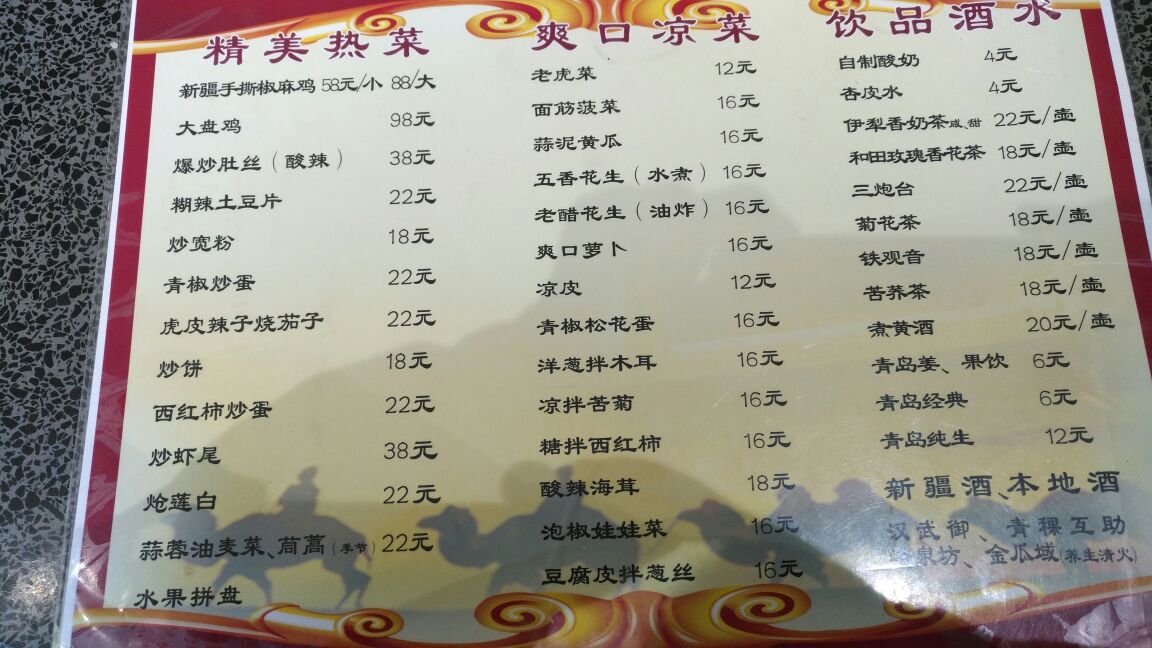 精美热菜
新疆手撕椒麻鸡 58元/小 88/大
大盘鸡 98元
爆炒肚丝（酸辣） 38元
糊辣土豆片 22元
炒宽粉 18元
青椒炒蛋 22元
虎皮辣子烧茄子 22元
炒饼 18元
西红柿炒蛋 22元
炒虾尾 38元
炝莲白 22元
蒜蓉油麦菜、茼蒿（季节） 22元
水果拼盘
爽口凉菜
老虎菜 12元
面筋菠菜 16元
蒜泥黄瓜 16元
五香花生（水煮） 16元
老醋花生（油炸） 16元
爽口萝卜 16元
凉皮 12元
青椒松花蛋 16元
洋葱拌木耳 16元
凉拌苦菊 16元
糖拌西红柿 16元
酸辣海茸 18元
泡椒娃娃菜 16元
豆腐皮拌葱丝 16元
饮品酒水
自制酸奶 4元
杏皮水 4元
伊犁香奶茶咸、甜 22元/壶
和田玫瑰香花茶 18元/壶
三炮台 22元/壶
菊花茶 18元/壶
铁观音 18元/壶
苦荞茶 18元/壶
煮黄酒 20元/壶
青岛姜、果饮 6元
青岛经典 6元
青岛纯生 12元
新疆酒、本地酒
汉武御、青稞互助
泉坊、金瓜域(养生清火)